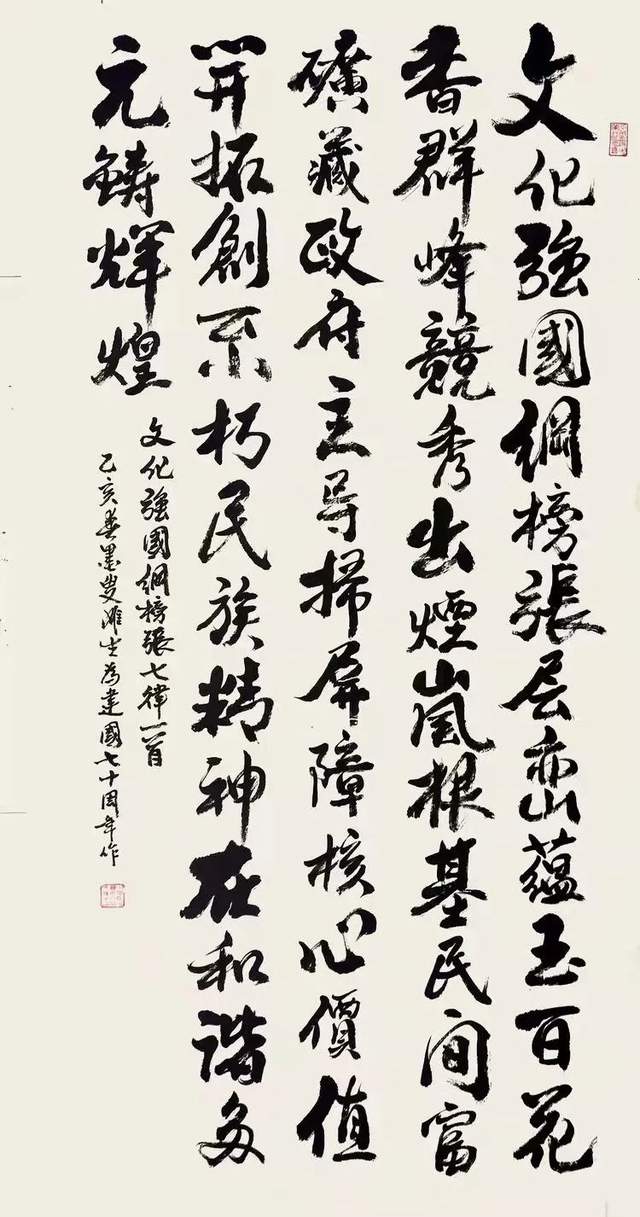 文化強國綱榜張层峦蕴玉百花
香群峰競秀出煙嵐根基民间富
礦藏政府主导掃屏障核心價值
開拓創不朽民族精神在和谐多
元鑄輝煌
文化強國綱榜張七律一首
乙亥春墨叟潍生為建國七十周年作